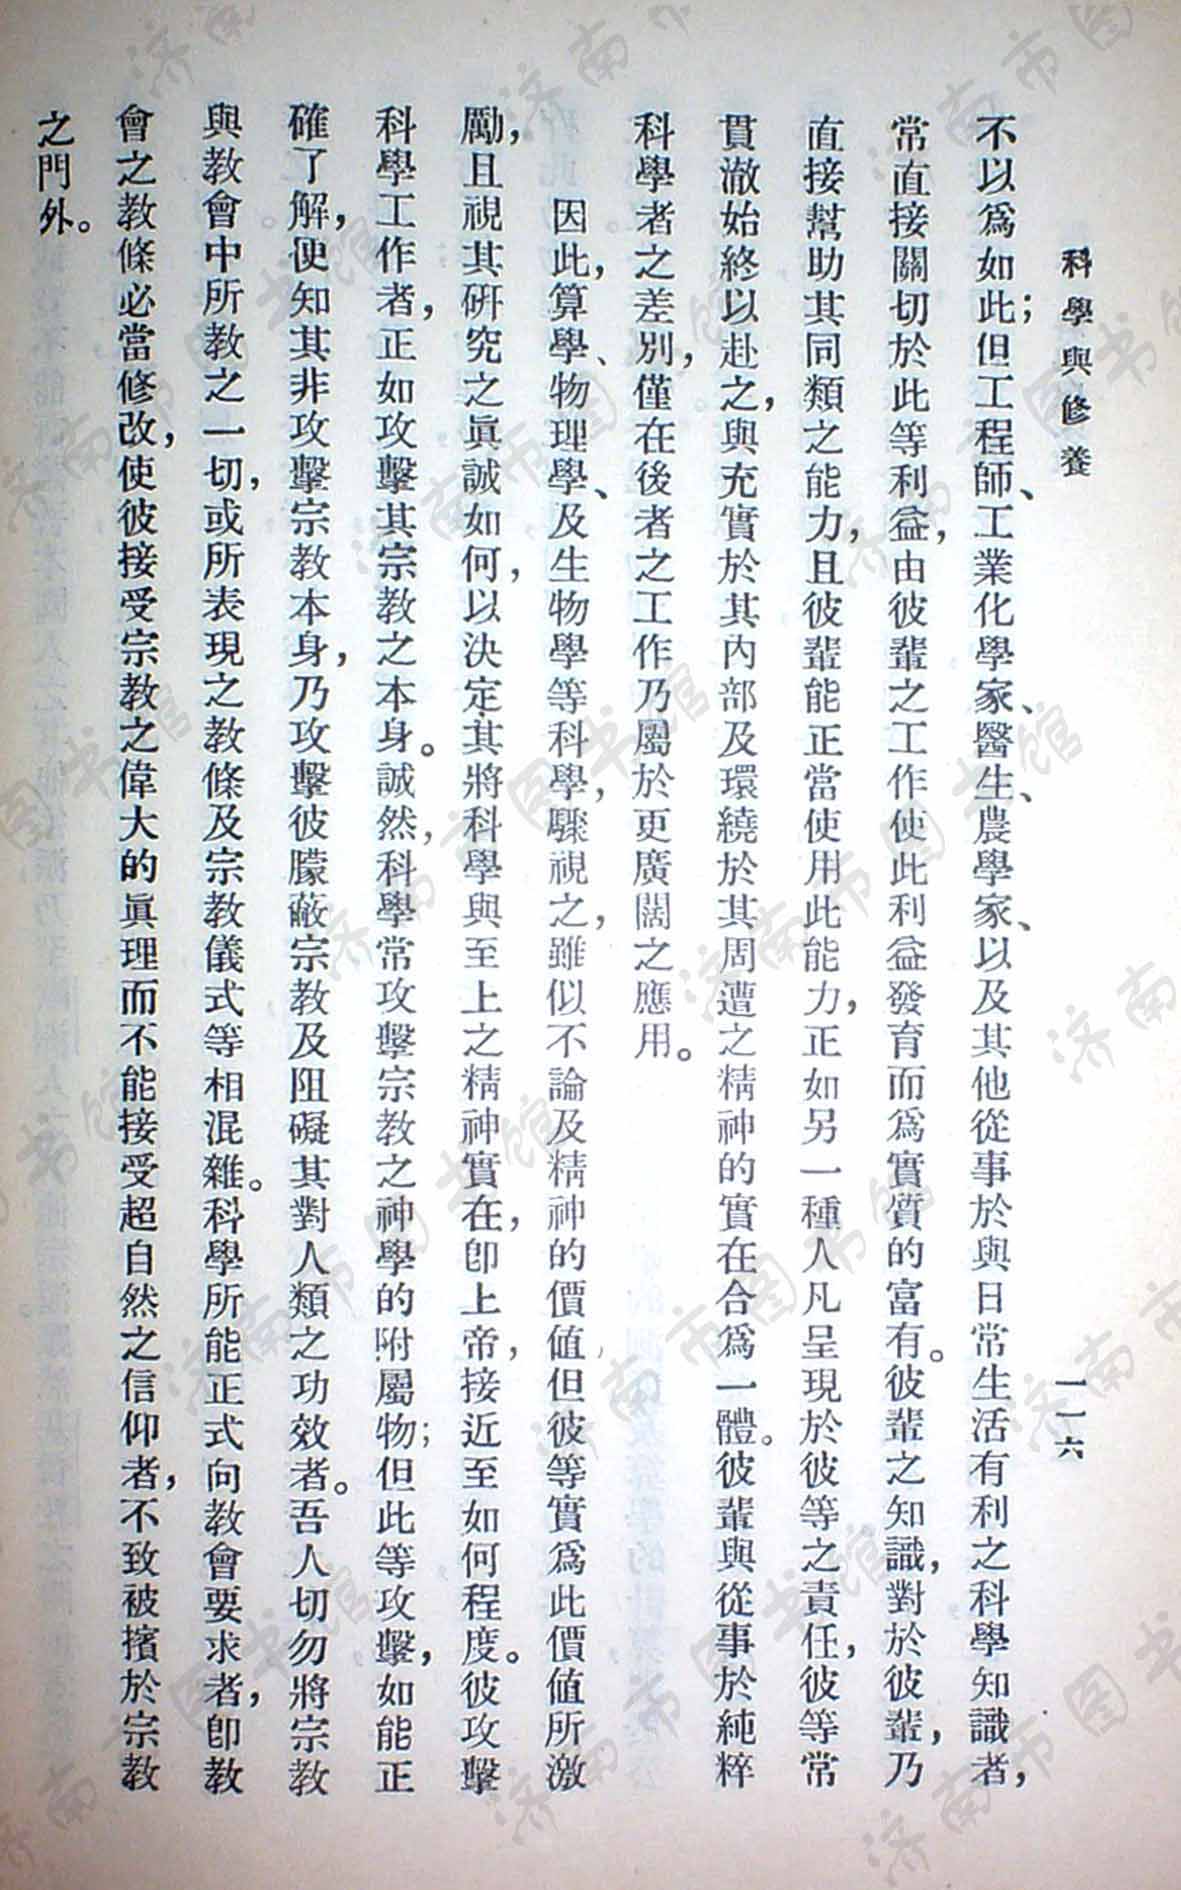 科學與修養
一一六
不以爲如此；但工程師、工業化學家、醫生、農學家、以及其他從事於與日常生活有利之科學知識者，
常直接關切於此等利益，由彼輩之工作使此利益發育而爲實質的富有。彼輩之知識，對於彼輩，乃
直接幫助其同類之能力，且彼輩能正當使用此能力，正如另一種人凡呈現於彼等之責任，彼等常
貫澈始終以赴之，與充實於其內部及環繞於其周遭之精神的實在合爲一體。彼輩與從事於純粹
科學者之差別，僅在後者之工作乃屬於更廣闊之應用。
因此，算學、物理學、及生物學等科學，驟視之，雖似不論及精神的價値，但彼等實爲此價値所激
勵，且視其硏究之眞誠如何，以決定其將科學與至上之精神實在，卽上帝，接近至如何程度。彼攻擊
科學工作者，正如攻擊其宗教之本身。誠然，科學常攻擊宗教之神學的附屬物；但此等攻擊，如能正
確了解，便知其非攻擊宗教本身，乃攻擊彼朦蔽宗教及阻礙其對人類之功效者。吾人切勿將宗教
與教會中所教之一切，或所表現之教條及宗教儀式等相混雜。科學所能正式向教會要求者，卽教
會之教條必當修改，使彼接受宗教之偉大的眞理而不能接受超自然之信仰者，不致被擯於宗教
之門外。
济南市图书馆